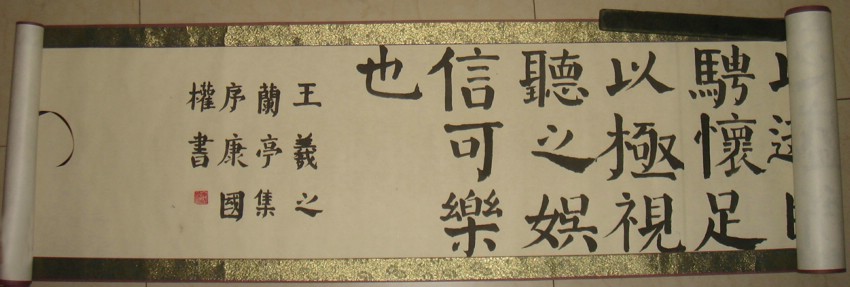 騁懷足
以極視
聽之娛
信可樂
也
王羲之
蘭亭集
序康國
權書